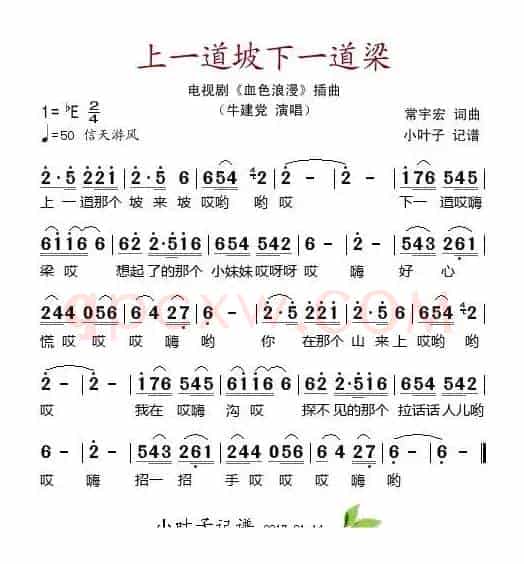 上一道坡下一道梁
电视剧《血色浪漫》插曲
（牛建党 演唱）
1= ♭E 2/4
常宇宏 词曲
♩=50 信天游风
小叶子 记谱
2·5 221 2·5 6 654 42 2 - 2 - 176 545
上一道那个 坡来坡 哎哟 哟 哎 下一 道哎嗨
61116 6 62 2·516 654 542 6 - 2 - 543 261
梁哎 想起了的那个 小妹妹哎呀呀 哎 嗨 好 心
244 056 64 27 6 - 2·5 221 2·5 6 654 42
慌哎 哎 哎 嗨 哟 你 在那个 山来上哎哟 哟
2 - 2 - 176 545 61116 6 62 2·516 654 542
哎 我在 哎嗨 沟哎 探不见的那个 拉话话人儿哟
6 - 2 - 543 261 244 056 64 27 6 - 6 -
哎 嗨 招一 招 手哎 哎 哎 嗨 哟
小叶子记谱